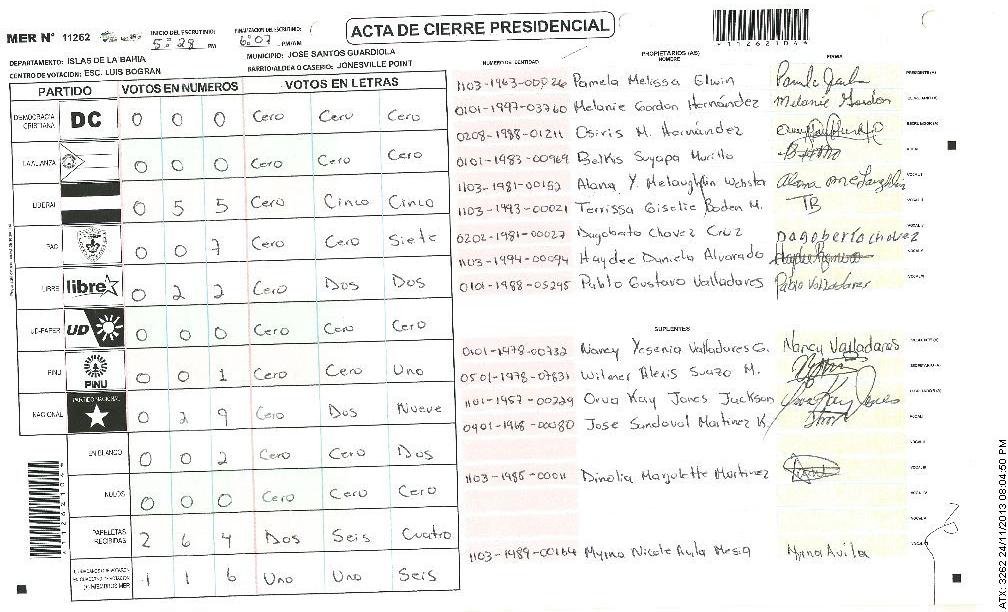 ACTA DE CIERRE PRESIDENCIAL
MER N° 11262
INICIO DEL ESCRUTINIO: 5:28 PM
FINALIZACION DEL ESCRUTINIO: 6:07 PM/AM
1126210
DEPARTAMENTO: ISLAS DE LA BAHIA
MUNICIPIO: JOSE SANTOS GUARDIOLA
CENTRO DE VOTACION: ESC. LUIS BOGRAN
BARRIO/ALDEA O CASERIO: JONESVILLE POINT
PARTIDO VOTOS EN NUMEROS VOTOS EN LETRAS
DEMOCRACIA CRISTIANA DC 0 0 0 Cero Cero Cero
LA ALIANZA 0 0 0 Cero Cero Cero
LIBERAL 0 5 5 Cero Cinco Cinco
PAC 0 0 7 Cero Cero Siete
LIBRE libre 0 2 2 Cero Dos Dos
UD-FAPER UD 0 0 0 Cero Cero Cero
PINU PINU 0 0 1 Cero Cero Uno
NACIONAL PARTIDO NACIONAL 0 2 9 Cero Dos Nueve
EN BLANCO 0 0 2 Cero Cero Dos
NULOS 0 0 0 Cero Cero Cero
PAPELETAS RECIBIDAS 2 6 4 Dos Seis Cuatro
1 1 6 Uno Uno Seis
NUMERO DE IDENTIDAD PROPIETARIOS (AS) NOMBRE FIRMA
1103-1963-00026 Pamela Melissa Elwin PRESIDENTE(A)
0101-1997-03760 Melanie Gordon Hernández Melanie Gordon SECRETARIO(A)
0208-1988-01211 Osiris M. Hernández ESCRUTADOR(A)
0101-1983-00969 Belkis Suyapa Murillo VOCAL I
1103-1981-00152 Alana Y. Mclaughlin Webster Alana McLaughlin
1103-1993-00021 Terrissa Giselle Boden M. TB
0202-1981-00027 Dagoberto Chovez Cruz Dagoberto chovez
1103-1994-00094 Haydee Daniela Alvarado
0101-1988-05245 Pablo Gustavo Valladares Pablo Valladares
SUPLENTES
0101-1978-00732 Nancy Yesenia Valladares G. Nancy Valladares
0501-1978-07831 Wilmer Alexis Suazo M. SECRETARIO(A)
1101-1957-00229 Orva Kay Jones Jackson Orva Kay Jones
0901-1968-00080 Jose Sandoval Martinez K. VOCAL I
VOCAL II
1103-1985-00011 Dinolia Margolette Martinez VOCAL III
VOCAL IV
VOCAL V
1103-1989-00164 Myrna Nicole Avila Mesia Myrna Avila
ATX: 3262 24/11/2013 08:04:50 PM